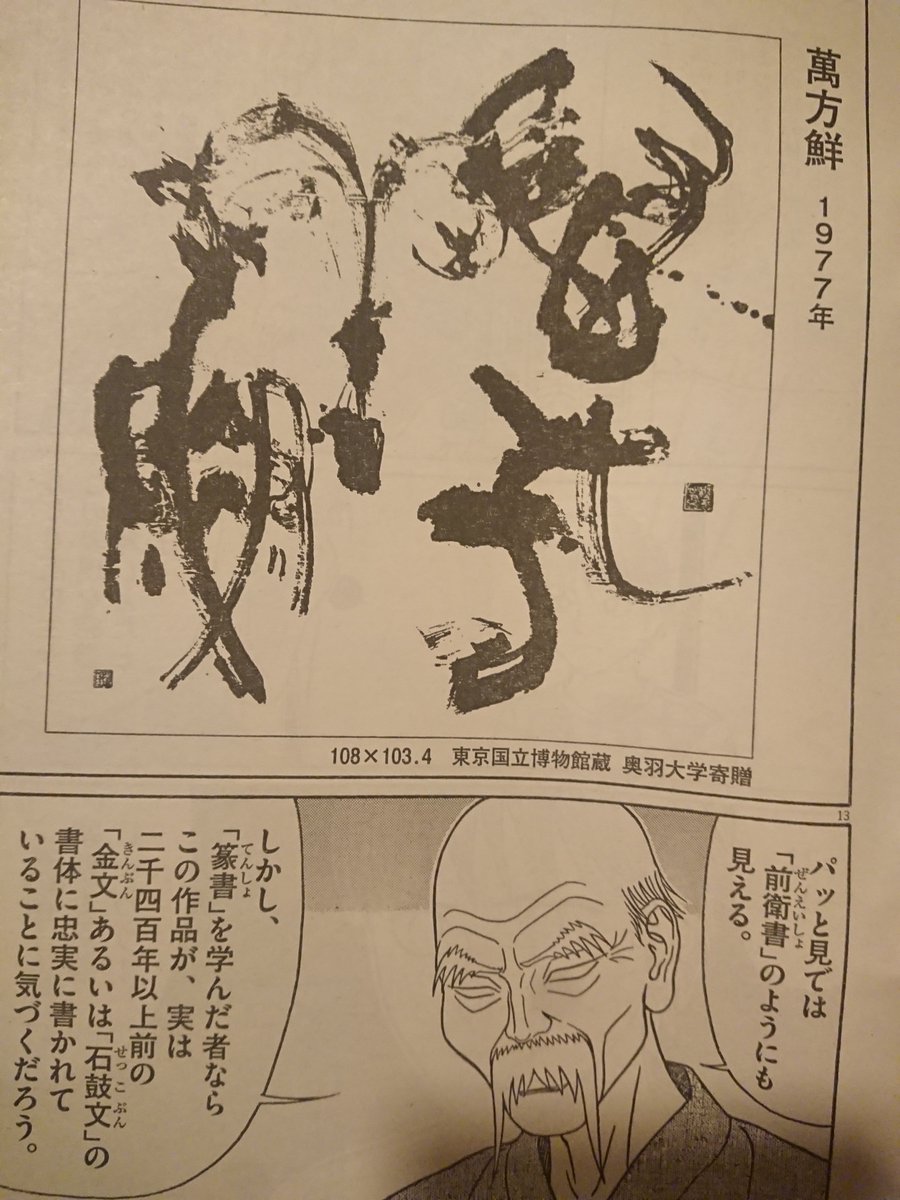 萬方鮮 1977年
108×103.4 東京国立博物館蔵 奥羽大学寄贈
13
パッと見では
「前衛書」のようにも
ぜんえいしょ
見える。
しかし、
「篆書」を学んだ者なら
てんしょ
この作品が、実は
二千四百年以上前の
「金文」あるいは「石鼓文」の
きんぶん
せっこぶん
書体に忠実に書かれて
いることに気づくだろう。